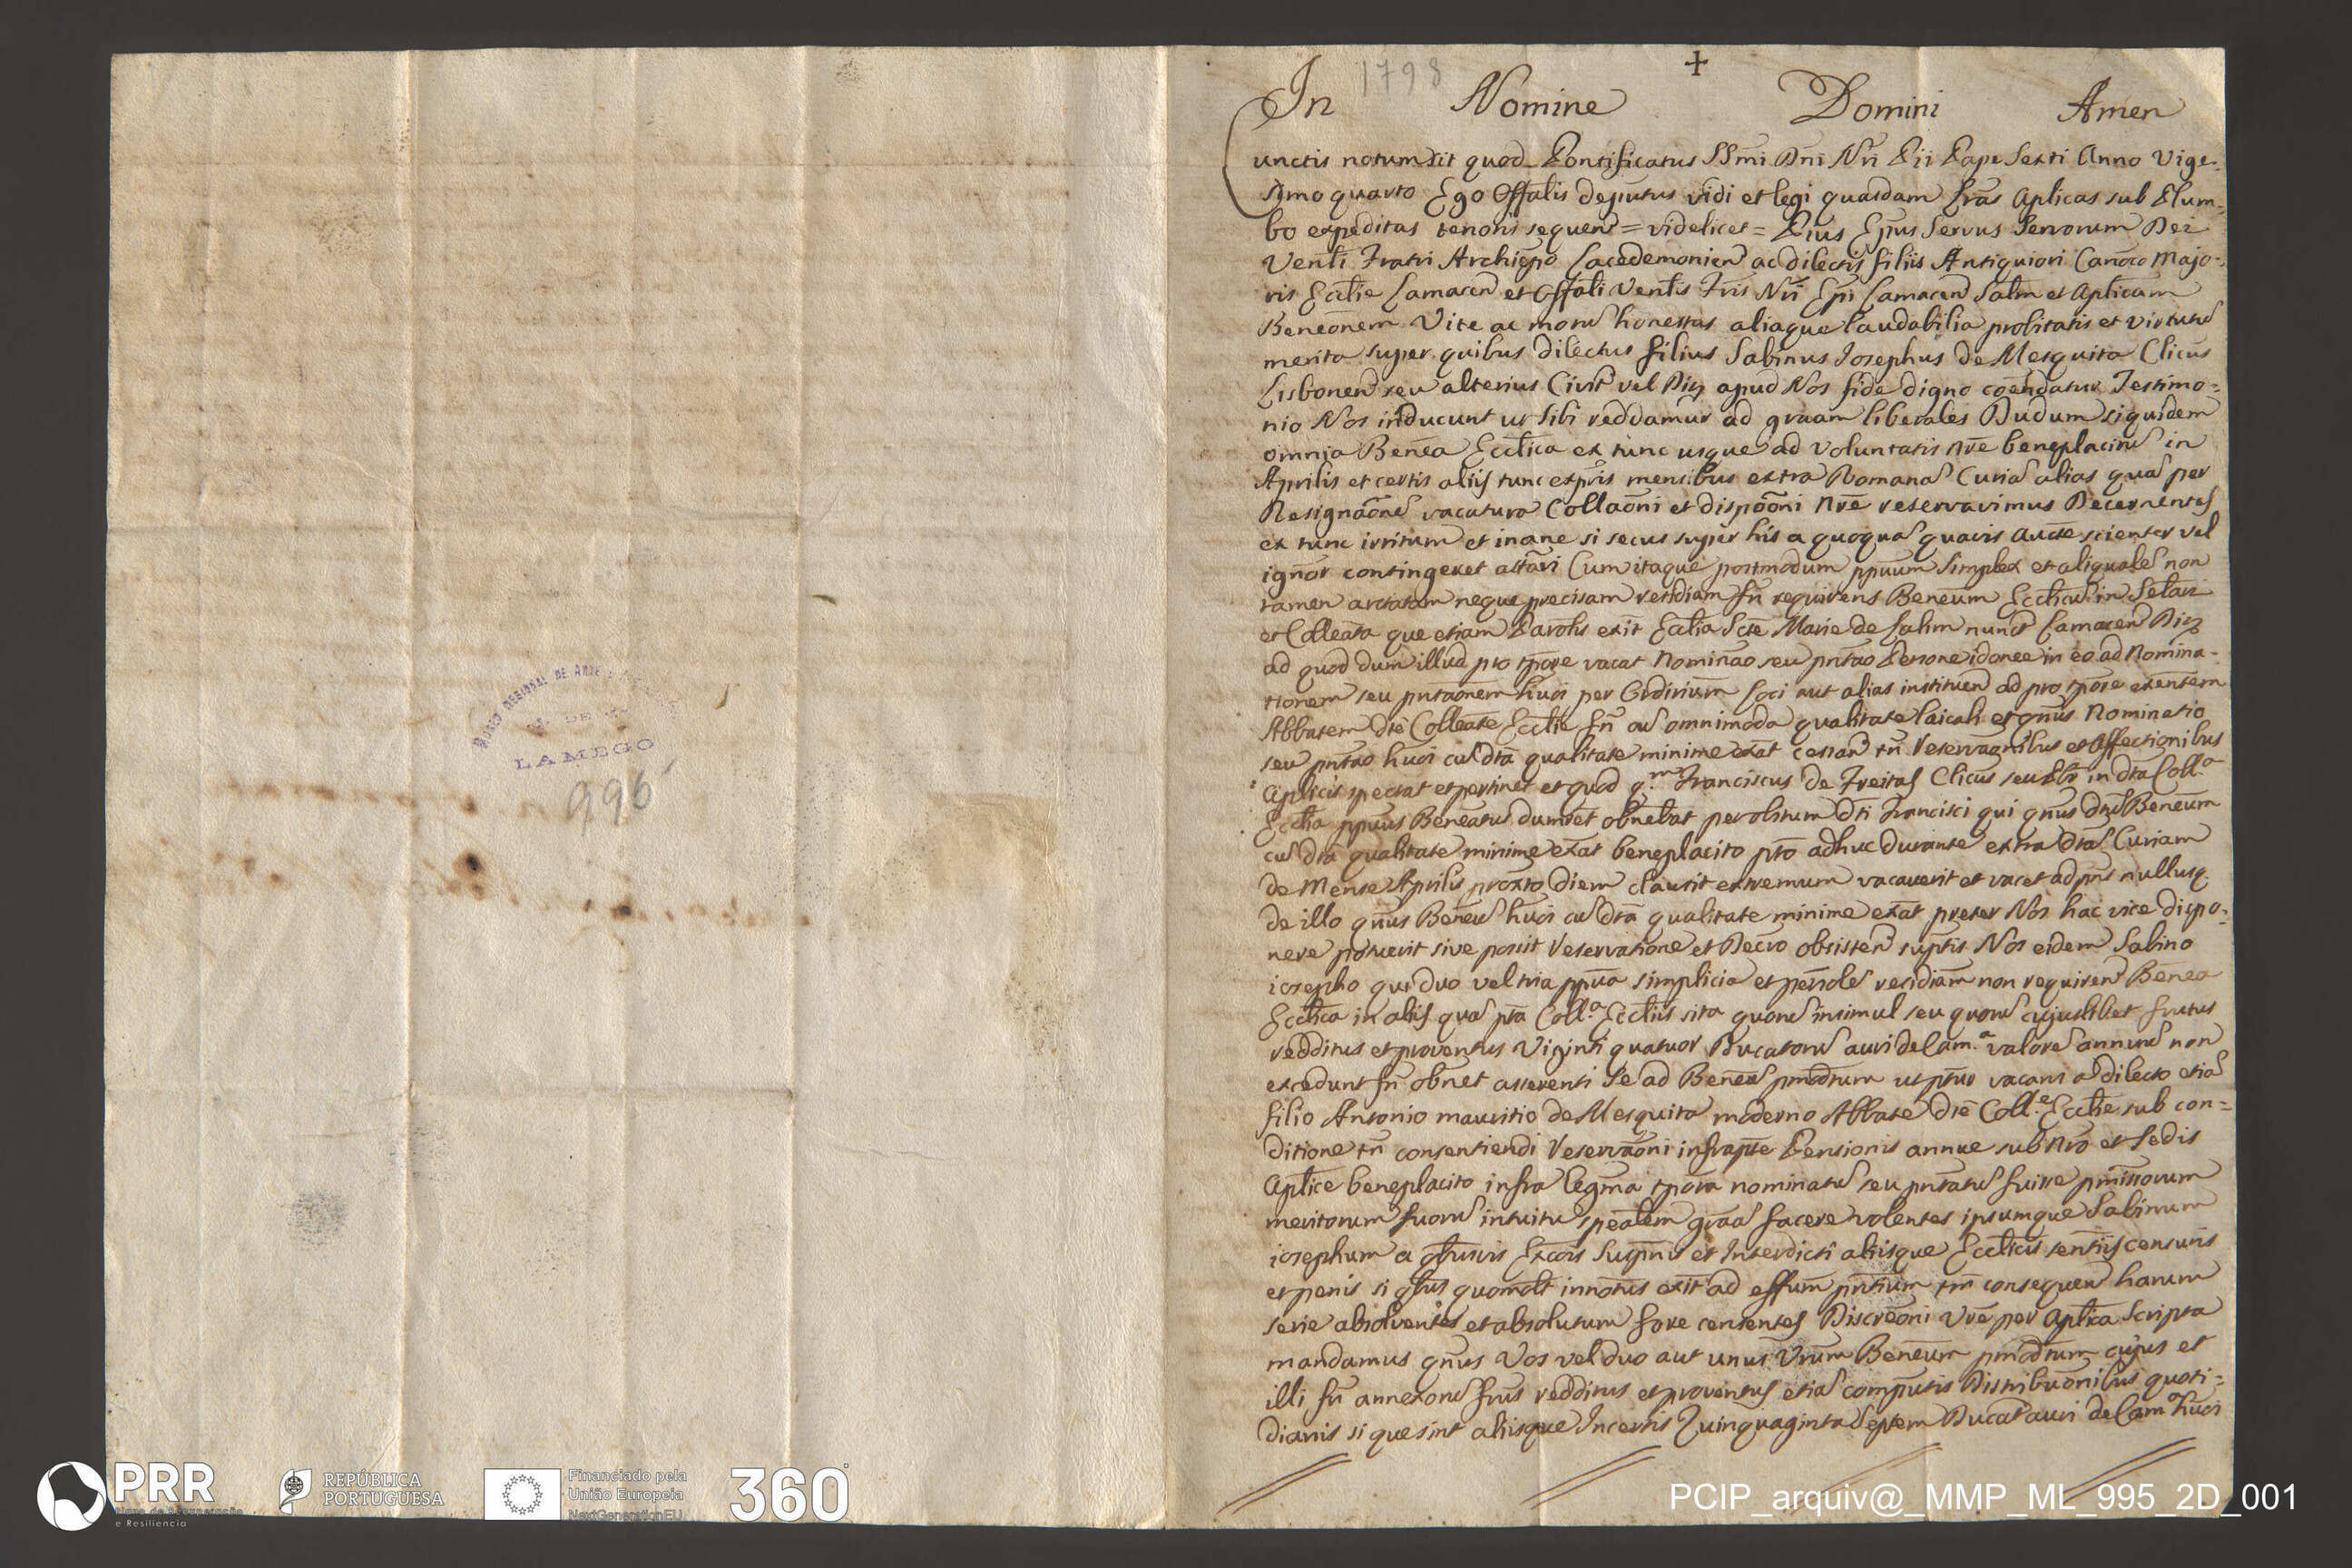 MUSEU REGIONAL DE ARTE
LAMEGO
996
1798
+
In Nomine Domini Amen
Cunctis notum sit quod Pontificatus SSmi Dni Nri Pii Pape Sexti Anno Vige-
simo quarto Ego Offalis deputus vidi et legi quasdam Lras Aplicas sub Plum-
bo expeditas tenoris sequens = videlicet = Pius Epus Servus Servorum Dei
Venli Fratri Archiepo Lacedemonien ac dilectis filiis Antiquiori Canoco Majo-
ris Ecclie Lamacen et Offali Venlis Fris Nri Epi Lamacen Salm et Aplicam
Beneonem Vite ac moru honestas aliaque laudabilia probitatis et virtutu
merita super quibus dilectus filius Sabinus Josephus de Mesquita Clicus
Lisbonen seu alterius Civit vel Dioz apud Nos fide digno coendatur Testimo-
nio Nos inducunt ut sibi reddamur ad graam liberales Dudum siquidem
omnia Benea Ecclica ex tunc usque ad voluntatis nre beneplacitu in
Aprilis et certis aliis tunc expris mensibus extra Romana Curia alias qua per
Resignaone vacatura Collaoni et dispooni nre reservavimus Decernentes
ex tunc irritum et inane si secus super his a quoqua quavis aucte scienter vel
ignor contingeret attari Cum itaque postmodum ppuum simplex et aliquale non
tamen arctatam neque precisam residiam fn requirens Beneum Ecclicu in Setari
et Colleata que etiam Parolis exit Ecclia Scte Marie de Salim nunct Lamacen Dioz
ad quod dum illud pro tpore vacat Nominao seu pntao Persone idonee in eo ad Nomina-
tionem seu pntaonem huoi per Ordirium Loci aut alias instituen ad pro tpore exentem
Abbatem dte Colleate Ecclie fn cu omnimoda qualitate laicali et gnus Nominatio
seu pntao huoi cu dta qualitate minime exat cessan tn reservaonibus et Affectionibus
Aplicis spectat et pertinet et quod q.m Franciscus de Freitas Clicus seu Pbr in dta Coll.a
Ecclia ppuus Beneatus dum vet obnebat per obitum dti Francisci qui gnus dtu Beneum
cu dta qualitate minime exat beneplacito pto adhuc durante extra dta Curiam
de Mense Aprilis proxto diem clausit extremum vacaverit et vacet ad pns nullusq.
de illo gnus Beneu huoi cu dta qualitate minime exat preter Nos hac vice dispo-
nere potuerit sive possit reservatione et Decro obsisten suptis Nos eidem Sabino
iosepho qui duo vel tria ppua simplicia et pensole residiam non requiren Benea
Ecclica in aliis qua pta Coll.a Eccliis sita quoru insimul seu quoru cujuslibet fructus
redditus et proventus Viginti quatuor Ducatoru auri de Cam.a valore annuu non
excedunt fn obnet asserenti se ad Beneu pmodtum ut pfur vacans a dilecto etia
filio Antonio mauritio de Mesquita moderno Abbate dte Coll.e Ecclie sub con-
ditione tn consentiendi reservaoni infrapte Pensionis annue sub nro et Sedis
Aplice beneplacito infra legma tpora nominatu seu pntatu fuisse pmissorum
meritorum suoru intuitu spealem graa facere volentes ipsumque Sabinum
iosephum a qbusvis Excois Suspnis et Interdicti aliisque Ecclicis sentiis censuris
et penis si qbus quomolt innotus exit ad effum pntium tm consequen harum
serie absolventes et absolutum fore censentes Discreoni vre per Aplica Scripta
mandamus gnus Vos vel duo aut unus Vrum Beneum pmodtum cujus et
illi fn annexoru frus redditus et proventus etia computis Distribuonibus quoti-
dianis si que sint aliisque Incertis Quinquaginta Septem Ducat auri de Cam.a huoi
PRR
Plano de Recuperação
e Resiliência
REPÚBLICA
PORTUGUESA
Financiado pela
União Europeia
NextGenerationEU
360°
PCIP_arquiv@_MMP_ML_995_2D_001